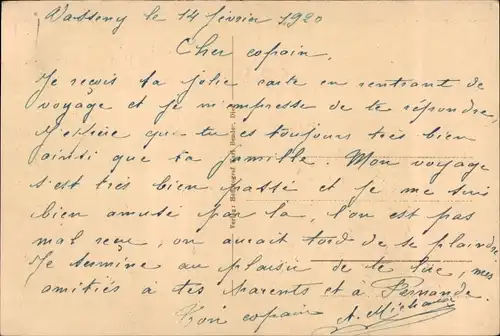 Vassony le 14 février 1920
Cher copain,
Je reçois ta jolie carte en rentrant de
voyage et je m'empresse de te répondre,
J'espère que tu es toujours très bien
ainsi que ta famille. Mon voyage
s'est très bien passé et je me suis
bien amusé par la, l'on est pas
mal reçu, on aurait tord de se plaindre.
Je termine au plaisir de te lire, mes
amitiés à tes parents et a Fernande.
Ton copain A. Michaud